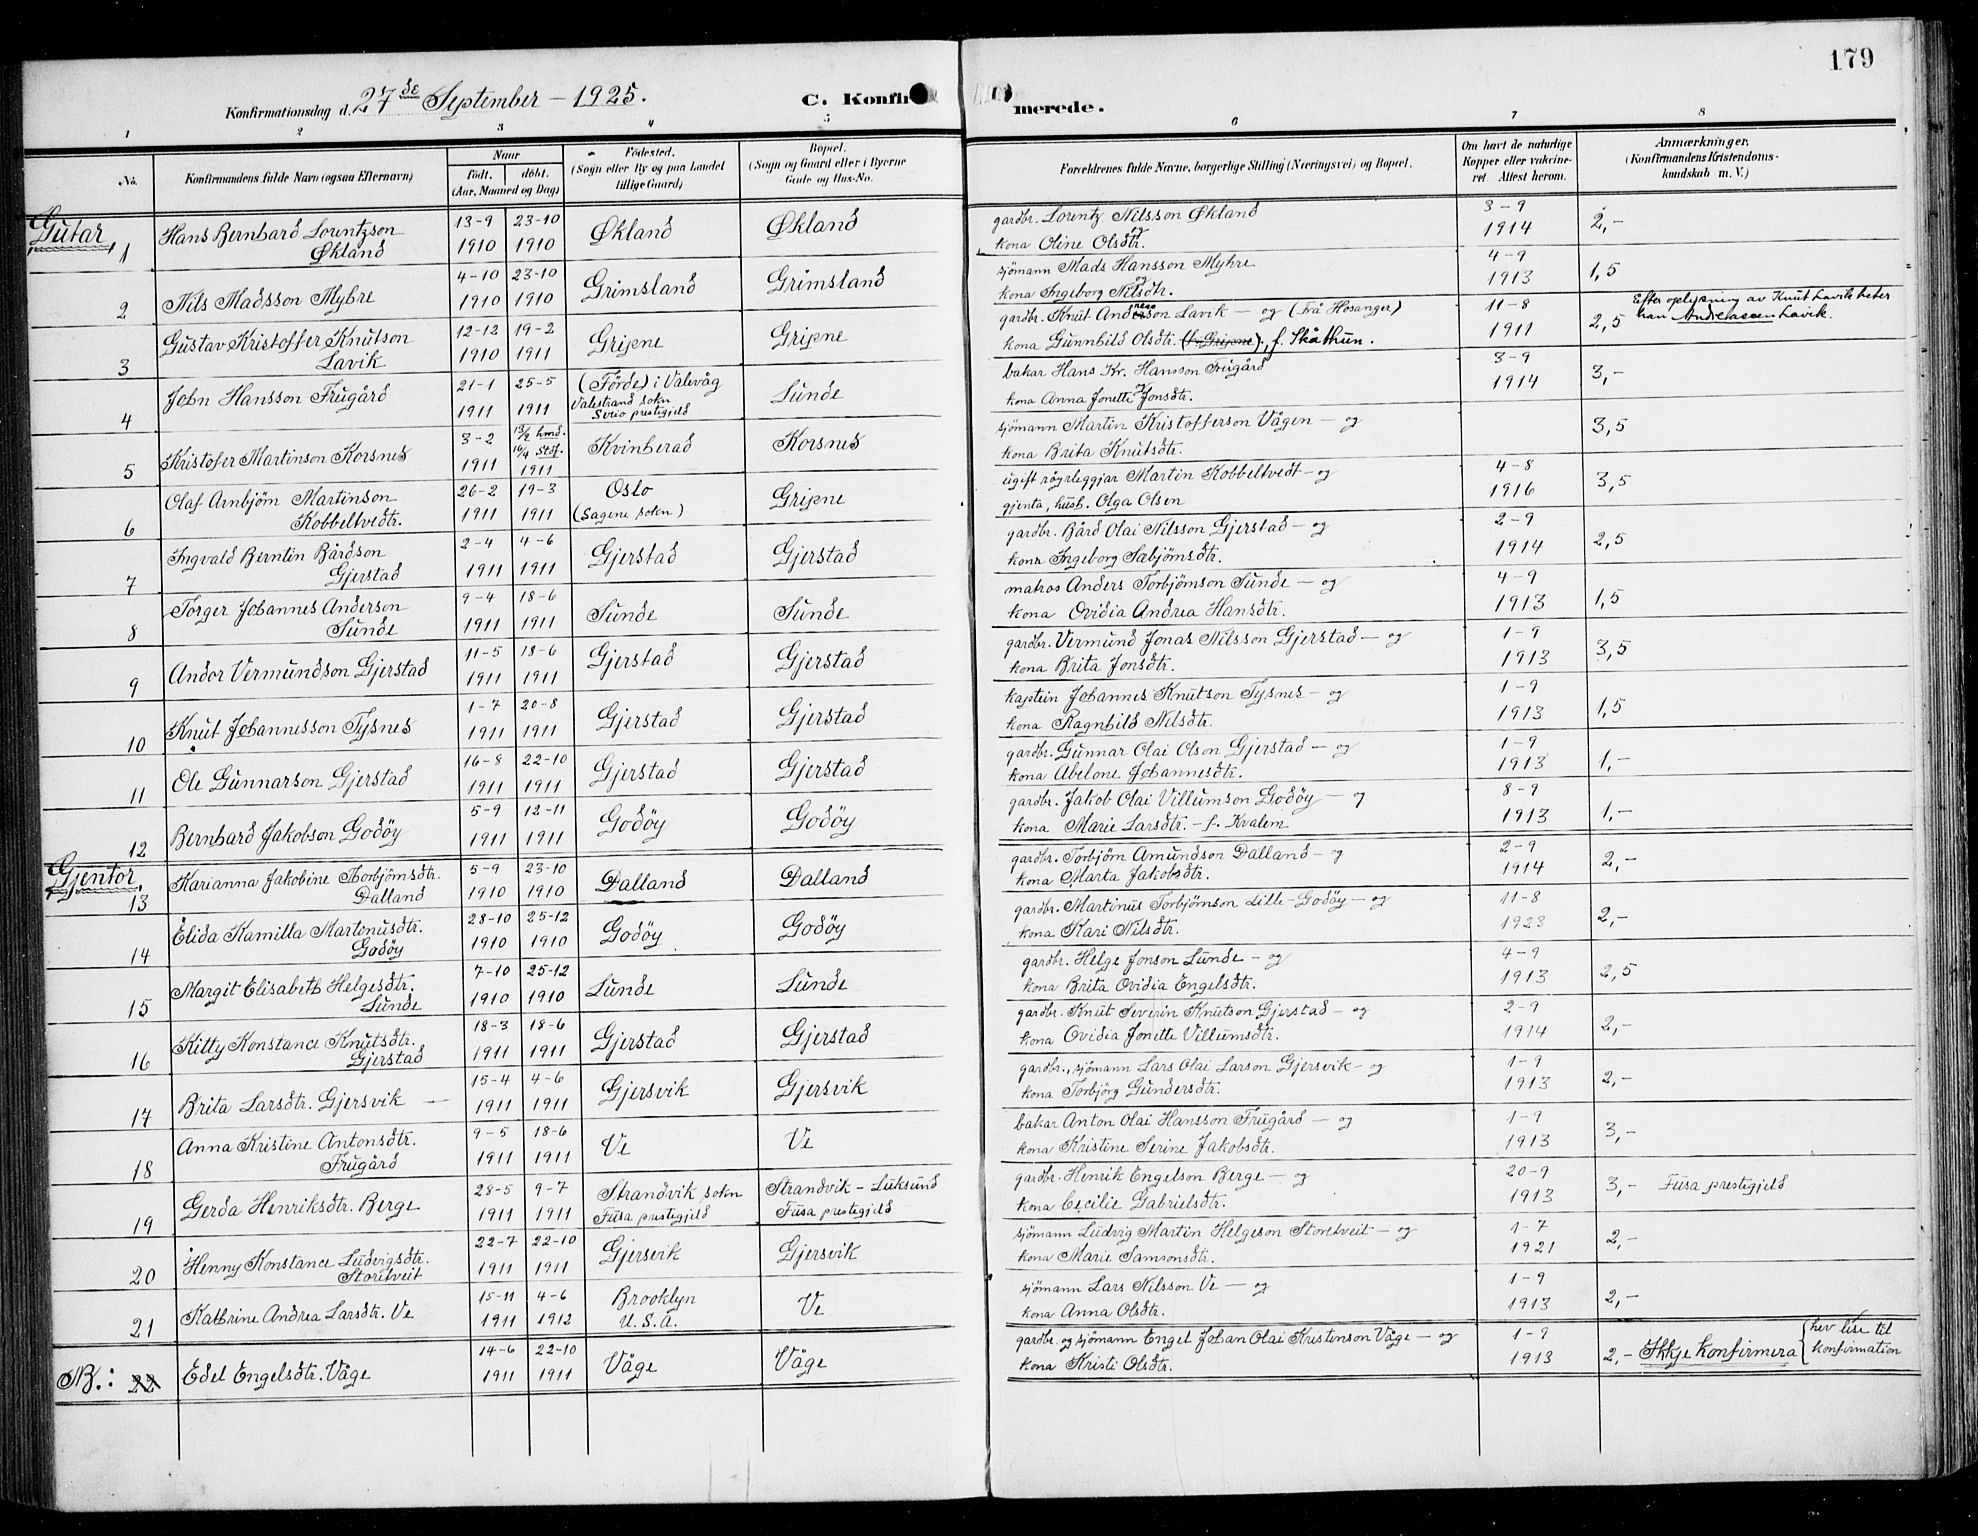 179
Konfirmationsdag d. 27de September - 1925.
C. Konfir
merede.
1 2 3 4 5 6 7 8
No. Konfirmandens fulde Navn (ogsaa Efternavn) Naar født. døbt. (Aar, Maaned og Dag) Fødested. (Sogn eller By og paa Landet tillige Gaard) Bopæl. (Sogn og Gaard eller i Byerne Gade og Hus-No. Forældrenes fulde Navne, borgerlige Stilling (Næringsvei) og Bopæl. Om havt de naturlige Kopper eller vakcineret Attest herom. Anmærkninger. (Konfirmandens Kristendomskundskab m. V.)
Gutar
1 Hans Bernhard Lorentzson Økland 13-9 1910 23-10 1910 Økland Økland gardbr. Lorentz Nilsson Økland og kona Oline Olsdtr. 3-9 1914 2,-
2 Nils Madsson Myhre 4-10 1910 23-10 1910 Grimsland Grimsland sjömann Mads Hansson Myhre og kona Ingeborg Nilsdtr. 4-9 1913 1,5
3 Gustav Kristoffer Knutson Lavik 12-12 1910 19-2 1911 Gripne Gripne gardbr. Knut Lavik - og (Frå Hosanger) kona Gunnhild Olsdtr. (f. Gripne), f. Skåthun. 11-8 1911 2,5 Efter oplysning av Knut Lavik heter han Andreassen Lavik.
4 John Hansson Frugård 21-1 1911 25-5 1911 (Förde) i Valevåg Valestrand sokn Sveio prestigjeld Sunde bakar Hans Kr. Hansson Frugård og kona Anna Jonette Jonsdtr. 3-9 1914 3,-
5 Kristofer Martinson Korsnes 3-2 1911 13/2 hmd. 16/4 Stöf. 1911 Kvinherad Korsnes sjömann Martin Kristofferson Vågen - og kona Brita Knutsdtr. 3,5
6 Olaf Arnbjörn Martinson Kobbeltvedtr. 26-2 1911 19-3 1911 Oslo (Sagene sokn) Gripne ugift röyrleggjar Martin Kobbeltvedt - og gjenta, hush. Olga Olsen 4-8 1916 3,5
7 Ingvald Berntin Bårdson Gjerstad 2-4 1911 4-6 1911 Gjerstad Gjerstad gardbr. Bård Olai Nilsson Gjerstad - og kona Ingeborg Sabjörnsdtr. 2-9 1914 2,5
8 Torger Johannes Anderson Sunde 9-4 1911 18-6 1911 Sunde Sunde matros Anders Torbjörnson Sunde - og kona Ovidia Andrea Hansdtr. 4-9 1913 1,5
9 Andor Vermundson Gjerstad 11-5 1911 18-6 1911 Gjerstad Gjerstad gardbr. Vermund Jonas Nilsson Gjerstad - og kona Brita Jonsdtr. 1-9 1913 3,5
10 Knut Johannesson Tysnes 1-7 1911 20-8 1911 Gjerstad Gjerstad kaptein Johannes Knutson Tysnes - og kona Ragnhild Nilsdtr. 1-9 1913 1,5
11 Ole Gunnarson Gjerstad 16-8 1911 22-10 1911 Gjerstad Gjerstad gardbr. Gunnar Olai Olson Gjerstad - og kona Abelone Johannesdtr. 1-9 1913 1,-
12 Bernhard Jakobson Godöy 5-9 1911 12-11 1911 Godöy Godöy gardbr. Jakob Olai Villumson Godöy - og kona Marie Larsdtr. - f. Kvalem 8-9 1913 1,-
Gjentor
13 Karianna Jakobine Thorbjörnsdtr. Dalland 5-9 1910 23-10 1910 Dalland Dalland gardbr. Torbjörn Amundson Dalland - og kona Marta Jakobsdtr. 2-9 1914 2,-
14 Elida Kamilla Martenusdtr. Godöy 28-10 1910 25-12 1910 Godöy Godöy gardbr. Martinus Torbjörnson Lille-Godöy - og kona Kari Nilsdtr. 11-8 1923 2,-
15 Margit Elisabeth Helgesdtr. Sunde 7-10 1910 25-12 1910 Sunde Sunde gardbr. Helge Jonson Sunde - og kona Brita Ovidia Engelsdtr. 4-9 1913 2,5
16 Kitty Konstance Knutsdtr. Gjerstad 18-3 1911 18-6 1911 Gjerstad Gjerstad gardbr. Knut Severin Knutson Gjerstad - og kona Ovidia Jonette Villumsdtr. 2-9 1914 2,-
17 Brita Larsdtr. Gjersvik 15-4 1911 4-6 1911 Gjersvik Gjersvik gardbr., sjömann Lars Olai Larson Gjersvik - og kona Torbjörg Gundersdtr. 1-9 1913 2,-
18 Anna Kristine Antonsdtr. Frugård 9-5 1911 18-6 1911 Ve Ve bakar Anton Olai Hansson Frugård - og kona Kristine Serine Jakobsdtr. 1-9 1913 3,-
19 Gerda Henriksdtr. Berge 28-5 1911 9-7 1911 Strandvik sokn Fusa prestigjeld Strandvik - Luksund Fusa prestigjeld gardbr. Henrik Engelson Berge - og kona Cecilie Gabrielsdtr. 20-9 1913 3,- Fusa prestigjeld
20 Henny Konstance Ludvigsdtr. Storetveit 22-7 1911 22-10 1911 Gjersvik Gjersvik sjömann Ludvig Martin Helgeson Storetveit - og kona Marie Samsonsdtr. 1-7 1921 2,-
21 Kathrine Andrea Larsdtr. Ve 15-11 1911 4-6 1912 Brooklyn U.S.A. Ve sjömann Lars Nilsson Ve - og kona Anna Olsdtr. 1-9 1913 2,-
NB.: 22 Edel Engelsdtr. Våge 14-6 1911 22-10 1911 Våge Våge gardbr. og sjömann Engel Johan Olai Kristenson Våge - og kona Kristi Olsdtr. 1-9 1913 2,- Ikkje konfirmera { hev lese til konfirmation